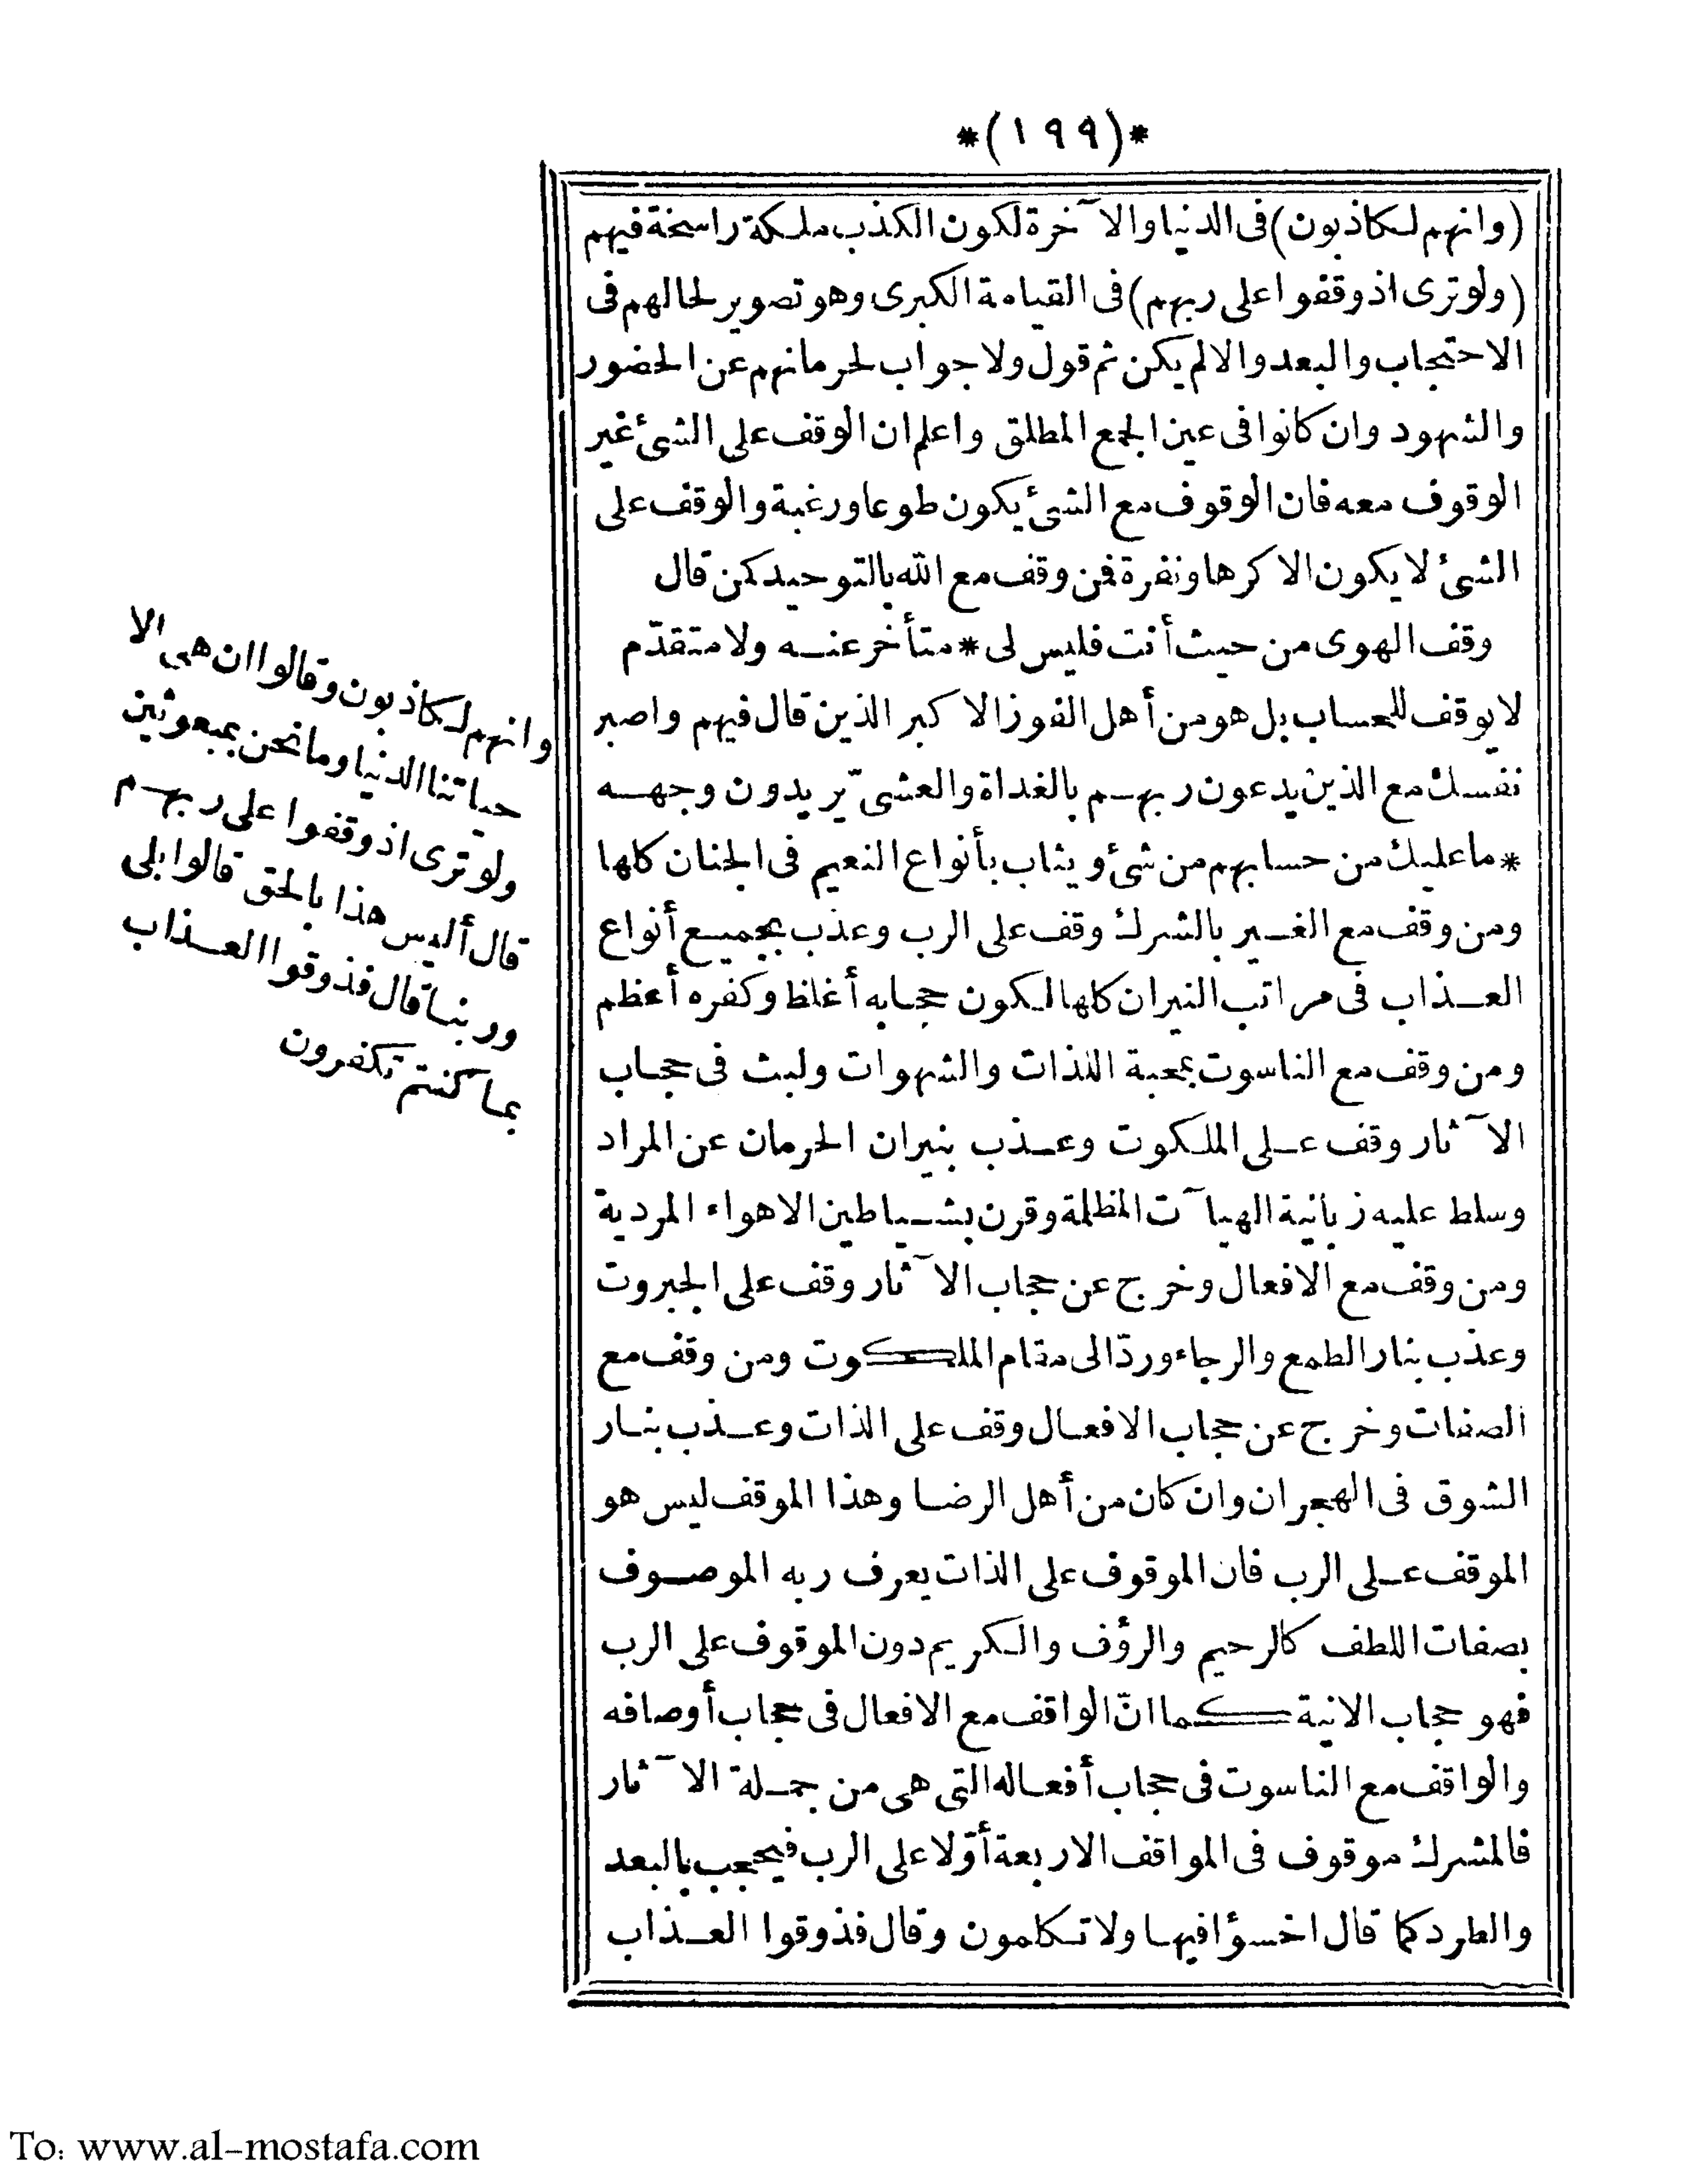 *(١٩٩)*
(وانهم لكاذبون) فى الدنيا والآخرة لكون الكذب ملكة راسخة فيهم
(ولو ترى اذ وقفوا على ربهم) فى القيامة الكبرى وهو تصوير لحالهم فى
الاحتجاب والبعد والا لم يكن ثم قول ولا جواب لحرمانهم عن الحضور
والشهود وان كانوا فى عين الجمع المطلق واعلم ان الوقف على الشئ غير
الوقوف معه فان الوقوف مع الشئ يكون طوعا ورغبة والوقف على
الشئ لا يكون الا كرها ونفرة فمن وقف مع الله بالتوحيد كمن قال
وقف الهوى من حيث أنت فليس لى * متأخر عنه ولا متقدّم
لا يوقف للحساب بل هو من أهل الفوز الاكبر الذين قال فيهم واصبر
نفسك مع الذين يدعون ربهم بالغداة والعشىّ يريدون وجهه
* ما عليك من حسابهم من شئ ويثاب بأنواع النعيم فى الجنان كلها
ومن وقف مع الغير بالشرك وقف على الرب وعذب بجميع أنواع
العذاب فى مراتب النيران كلها لكون حجابه أغلظ وكفره أعظم
ومن وقف مع الناسوت بمحبة اللذات والشهوات ولبث فى حجاب
الآثار وقف على الملكوت وعذب بنيران الحرمان عن المراد
وسلط عليه زبانية الهيآت المظلمة وقرن بشياطين الاهواء المردية
ومن وقف مع الافعال وخرج عن حجاب الآثار وقف على الجبروت
وعذب بنار الطمع والرجاء وردّ الى مقام الملكوت ومن وقف مع
الصفات وخرج عن حجاب الافعال وقف على الذات وعذب بنار
الشوق فى الهجران وان كان من أهل الرضا وهذا الموقف ليس هو
الموقف على الرب فان الموقوف على الذات يعرف ربه الموصوف
بصفات اللطف كالرحيم والرؤف والكريم دون الموقوف على الرب
فهو حجاب الانية كما انّ الواقف مع الافعال فى حجاب أوصافه
والواقف مع الناسوت فى حجاب أفعاله التى هى من جملة الآثار
فالمشرك موقوف فى المواقف الاربعة أوّلا على الرب فيحجب بالبعد
والطرد كما قال اخسؤا فيها ولا تكلمون وقال فذوقوا العذاب
وانهم لكاذبون وقالوا ان هى الا
حياتنا الدنيا وما نحن بمبعوثين
ولو ترى اذ وقفوا على ربهم
قال أليس هذا بالحق قالوا بلى
وربنا قال فذوقوا العذاب
بما كنتم تكفرون
To: www.al-mostafa.com